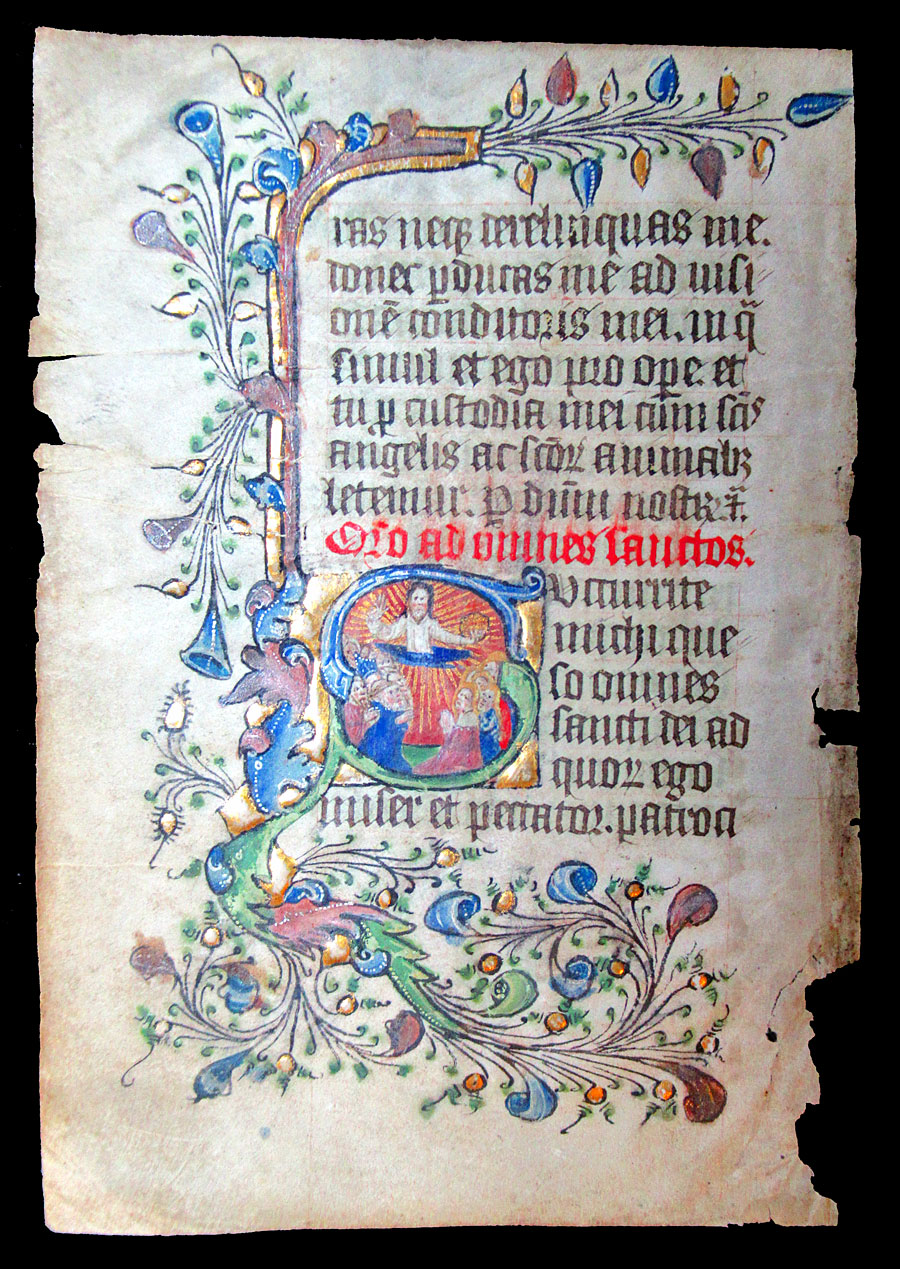 ras neqꝫ derelinquas me.
donec ꝑducas me ad uisi
onē conditoris mei. in q̄
simul et ego pro ope. et
tu ꝑ custodia mei cum scīs
angelis ac scōꝝ animabꝫ
letemur. P dn̄m nostꝝ.
Oro ad omnes sanctos.
Succurrite
michi que
so omnes
sancti dei ad
quoꝝ ego
miser et peccator. patroci